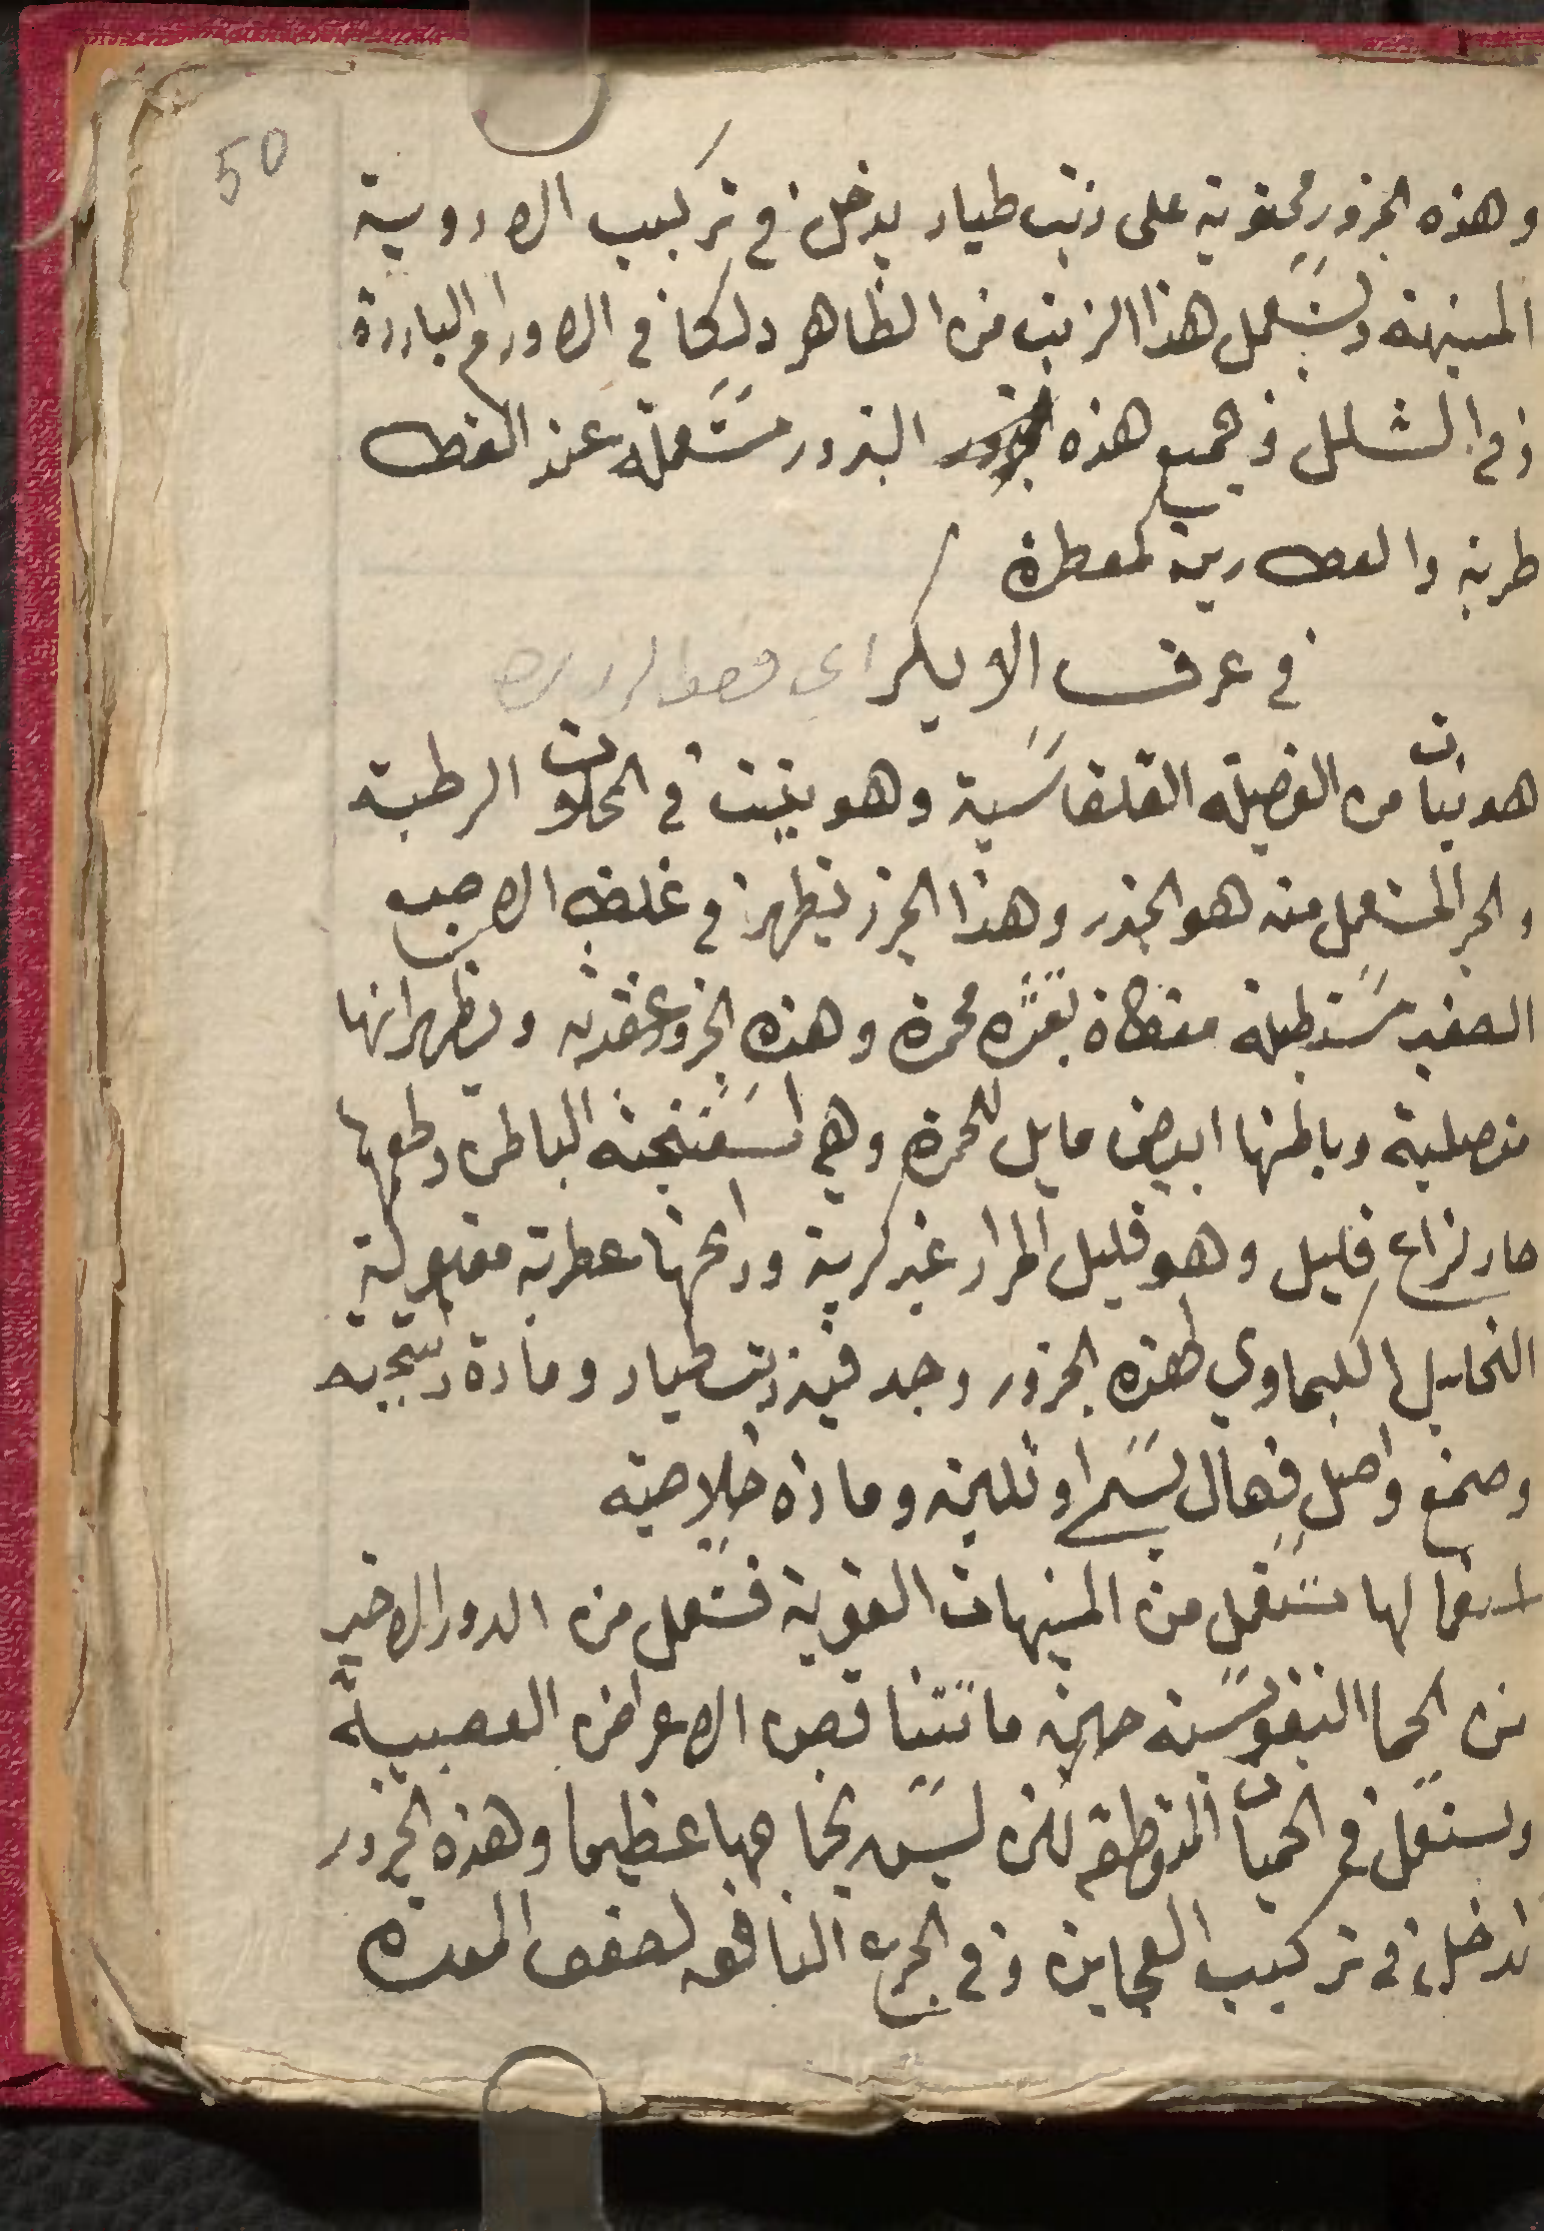 50
وهذه الجزور محتوية على زيت طيار يدخل في تركيب الادوية
المنبهة ويستعمل هذا الزيت من الظاهر دلكا في الاورام الباردة
وفي الشلل وجميع هذه البزور مستعملة عند العطا
طرية والعطارين كمعطرة
في عرق الايكر اي
هو نبات من الفصيلة القلقاسية وهو ينبت في المحلات الرطبة
والجز المستعمل منه هو الجذر وهذا الجزر يظهر في غلظ الاصبع
الصغير مستطيلة مغطاة بقشره محمرة وهذه الجزور عقديه ويظهر انها
مفصلية وباطنها ابيض مايل للحمرة وهي اسفنجية الباطن وطعمها
حار لزاع قليل وهو قليل المرار غير كرية ورايحتها عطرية مقبولة
التحليل الكيماوي لهذه الجزور وجد فيه زيت طيار ومادة راتنجيه
وصمغ واصل فعال يسما او نلين ومادة خلاصية
استعمالها تستعمل من المنبهات القوية فتستعمل من الدور الاخير
من الحما التيفوسية حين ما تتناقص الاعراض العصبية
وتستعمل في الحميات المتقطعة لكن ليس نجاحها عظيما وهذه الجزور
تدخل في تركيب المعاجين وفي الجرع النافعه لضعف المعده